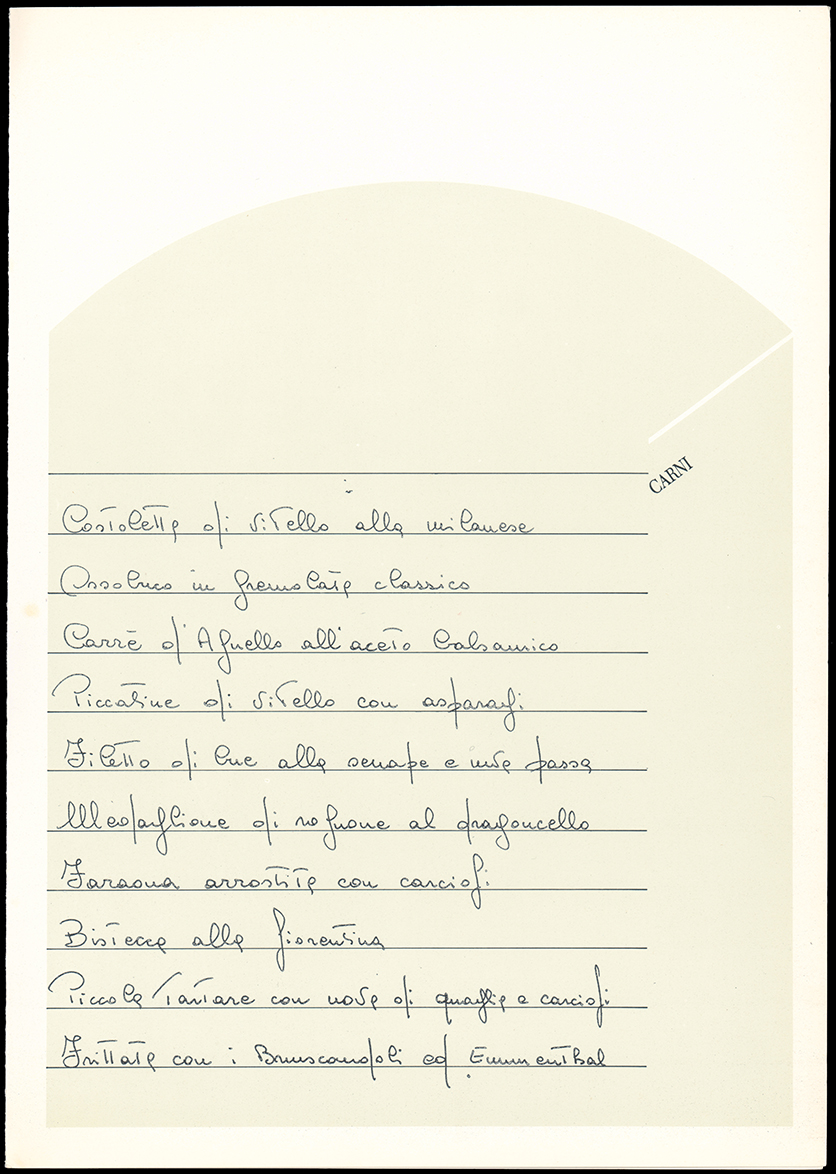 CARNI
Costoletta di vitello alla milanese
Ossobuco in gremolata classico
Carrè d'Agnello all'aceto balsamico
Piccatine di vitello con asparagi
Filetto di bue alla senape e uva passa
Medaglione di rognone al dragoncello
Faraona arrostita con carciofi
Bistecca alla fiorentina
Piccola Tartare con uova di quaglia e carciofi
Frittata con i Bruscandoli ed Emmenthal